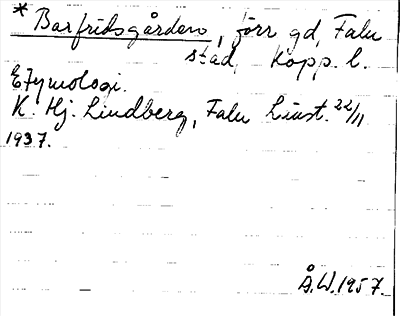 * Barfridsgården, förr gd, Falu
stad, Kopp. l.
Etymologi.
K. Hj. Lindberg, Falu Linst. 22/11
1937.
Å.W.1957.